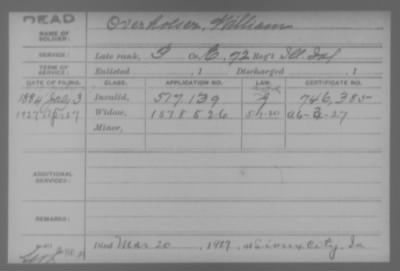 DEAD
NAME OF SOLDIER: Overholser, William
SERVICE: Late rank, P Co. E, 72 Reg't Ill. Inf
TERM OF SERVICE: Enlisted , 1 Discharged , 1
DATE OF FILING. CLASS. APPLICATION NO. LAW. CERTIFICATE NO.
1884 July 3 Invalid, 517,139 746,385
1927 27 Widow, 1578526 5-1-20 a6-3-27
Minor,
ADDITIONAL SERVICES:
REMARKS:
Died Mar 20 , 1927, at Sioux City, Ia